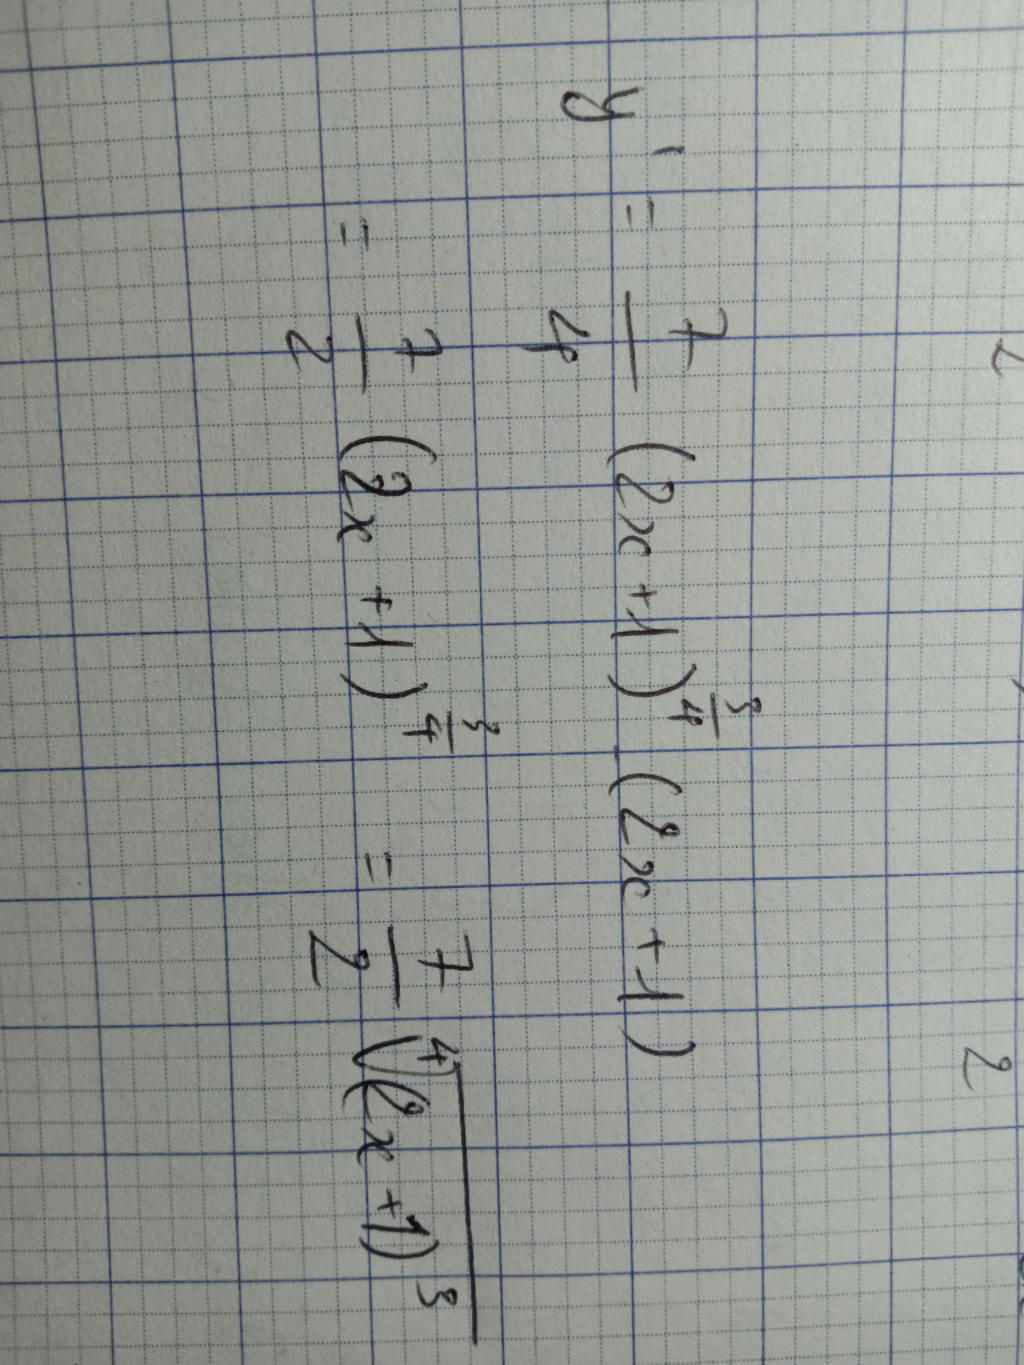 y' = 7/4 (2x+1)^(3/4) (2x+1)
= 7/2 (2x+1)^(3/4) = 7/2 ⁴√((2x+1)³)